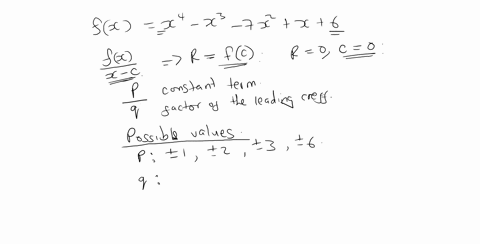 f(x) = x⁴ - x³ - 7x² + x + 6
f(x)/x-c => R = f(c) R=0, c=0
p/q constant term
factor of the leading coeff.
Possible values
P: ±1, ±2, ±3, ±6
q: